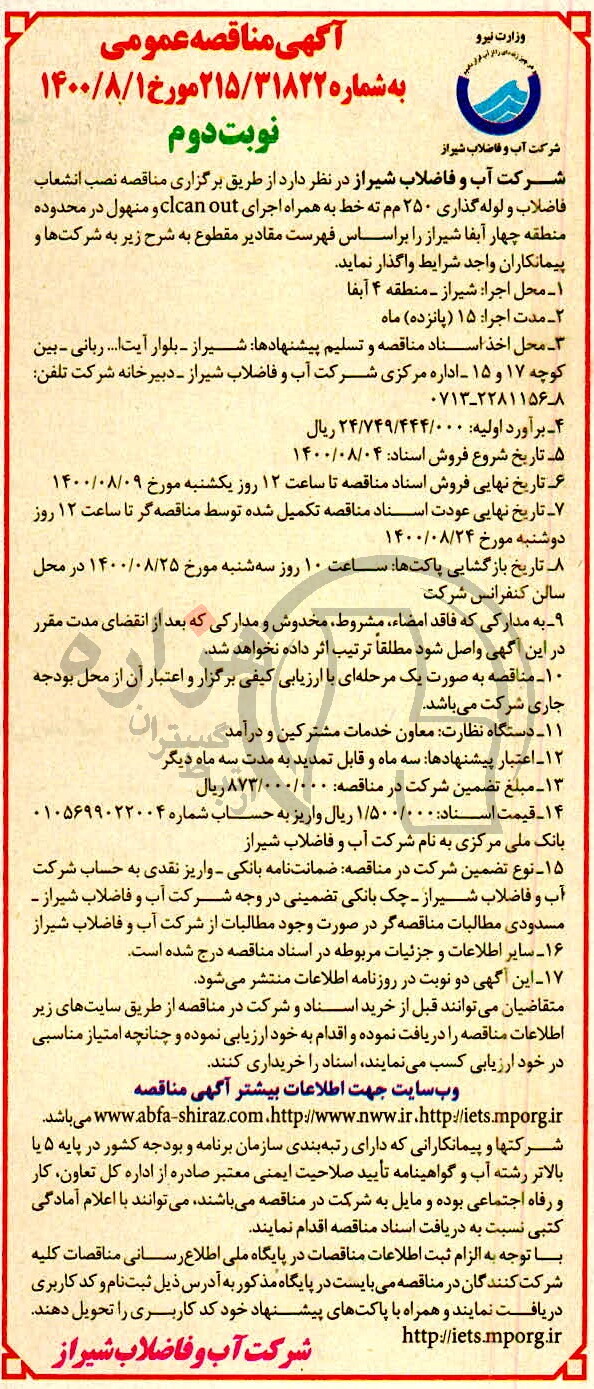 وزارت نیرو
شرکت آب و فاضلاب شیراز
آگهی مناقصه عمومی
به شماره ۲۱۵/۳۱۸۲۲ مورخ ۱۴۰۰/۸/۱
نوبت دوم
شرکت آب و فاضلاب شیراز در نظر دارد از طریق برگزاری مناقصه نصب انشعاب
فاضلاب و لوله گذاری ۲۵۰ م‌م ته خط به همراه اجرای clcan out و منهول در محدوده
منطقه چهار آبفا شیراز را براساس فهرست مقادیر مقطوع به شرح زیر به شرکت‌ها و
پیمانکاران واجد شرایط واگذار نماید.
۱ـ محل اجرا: شیراز ـ منطقه ۴ آبفا
۲ـ مدت اجرا: ۱۵ (پانزده) ماه
۳ـ محل اخذ اسناد مناقصه و تسلیم پیشنهادها: شیراز ـ بلوار آیت‌ا... ربانی ـ بین
کوچه ۱۷ و ۱۵ ـ اداره مرکزی شرکت آب و فاضلاب شیراز ـ دبیرخانه شرکت تلفن:
۸ـ۲۲۸۱۱۵۶ـ۰۷۱۳
۴ـ برآورد اولیه: ۲۴/۷۴۹/۴۴۴/۰۰۰ ریال
۵ـ تاریخ شروع فروش اسناد: ۱۴۰۰/۰۸/۰۴
۶ـ تاریخ نهایی فروش اسناد مناقصه تا ساعت ۱۲ روز یکشنبه مورخ ۱۴۰۰/۰۸/۰۹
۷ـ تاریخ نهایی عودت اسناد مناقصه تکمیل شده توسط مناقصه‌گر تا ساعت ۱۲ روز
دوشنبه مورخ ۱۴۰۰/۰۸/۲۴
۸ـ تاریخ بازگشایی پاکت‌ها: ساعت ۱۰ روز سه‌شنبه مورخ ۱۴۰۰/۰۸/۲۵ در محل
سالن کنفرانس شرکت
۹ـ به مدارکی که فاقد امضاء، مشروط، مخدوش و مدارکی که بعد از انقضای مدت مقرر
در این آگهی واصل شود مطلقاً ترتیب اثر داده نخواهد شد.
۱۰ـ مناقصه به صورت یک مرحله‌ای با ارزیابی کیفی برگزار و اعتبار آن از محل بودجه
جاری شرکت می‌باشد.
۱۱ـ دستگاه نظارت: معاون خدمات مشترکین و درآمد
۱۲ـ اعتبار پیشنهادها: سه ماه و قابل تمدید به مدت سه ماه دیگر
۱۳ـ مبلغ تضمین شرکت در مناقصه: ۸۷۳/۰۰۰/۰۰۰ ریال
۱۴ـ قیمت اسناد: ۱/۵۰۰/۰۰۰ ریال واریز به حساب شماره ۰۱۰۵۶۹۹۰۲۲۰۰۴
بانک ملی مرکزی به نام شرکت آب و فاضلاب شیراز
۱۵ـ نوع تضمین شرکت در مناقصه: ضمانت‌نامه بانکی ـ واریز نقدی به حساب شرکت
آب و فاضلاب شیراز ـ چک بانکی تضمینی در وجه شرکت آب و فاضلاب شیراز ـ
مسدودی مطالبات مناقصه‌گر در صورت وجود مطالبات از شرکت آب و فاضلاب شیراز
۱۶ـ سایر اطلاعات و جزئیات مربوطه در اسناد مناقصه درج شده است.
۱۷ـ این آگهی دو نوبت در روزنامه اطلاعات منتشر می‌شود.
متقاضیان می‌توانند قبل از خرید اسناد و شرکت در مناقصه از طریق سایت‌های زیر
اطلاعات مناقصه را دریافت نموده و اقدام به خود ارزیابی نموده و چنانچه امتیاز مناسبی
در خود ارزیابی کسب می‌نمایند، اسناد را خریداری کنند.
وب‌سایت جهت اطلاعات بیشتر آگهی مناقصه
http://iets.mporg.ir ،http://www.nww.ir ،www.abfa-shiraz.com می‌باشد.
شرکتها و پیمانکارانی که دارای رتبه‌بندی سازمان برنامه و بودجه کشور در پایه ۵ یا
بالاتر رشته آب و گواهینامه تأیید صلاحیت ایمنی معتبر صادره از اداره کل تعاون، کار
و رفاه اجتماعی بوده و مایل به شرکت در مناقصه می‌باشند، می‌توانند با اعلام آمادگی
کتبی نسبت به دریافت اسناد مناقصه اقدام نمایند.
با توجه به الزام ثبت اطلاعات مناقصات در پایگاه ملی اطلاع‌رسانی مناقصات کلیه
شرکت‌کنندگان در مناقصه می‌بایست در پایگاه مذکور به آدرس ذیل ثبت‌نام و کد کاربری
دریافت نمایند و همراه با پاکت‌های پیشنهاد خود کد کاربری را تحویل دهند.
http://iets.mporg.ir
شرکت آب و فاضلاب شیراز
هزاره
گستران